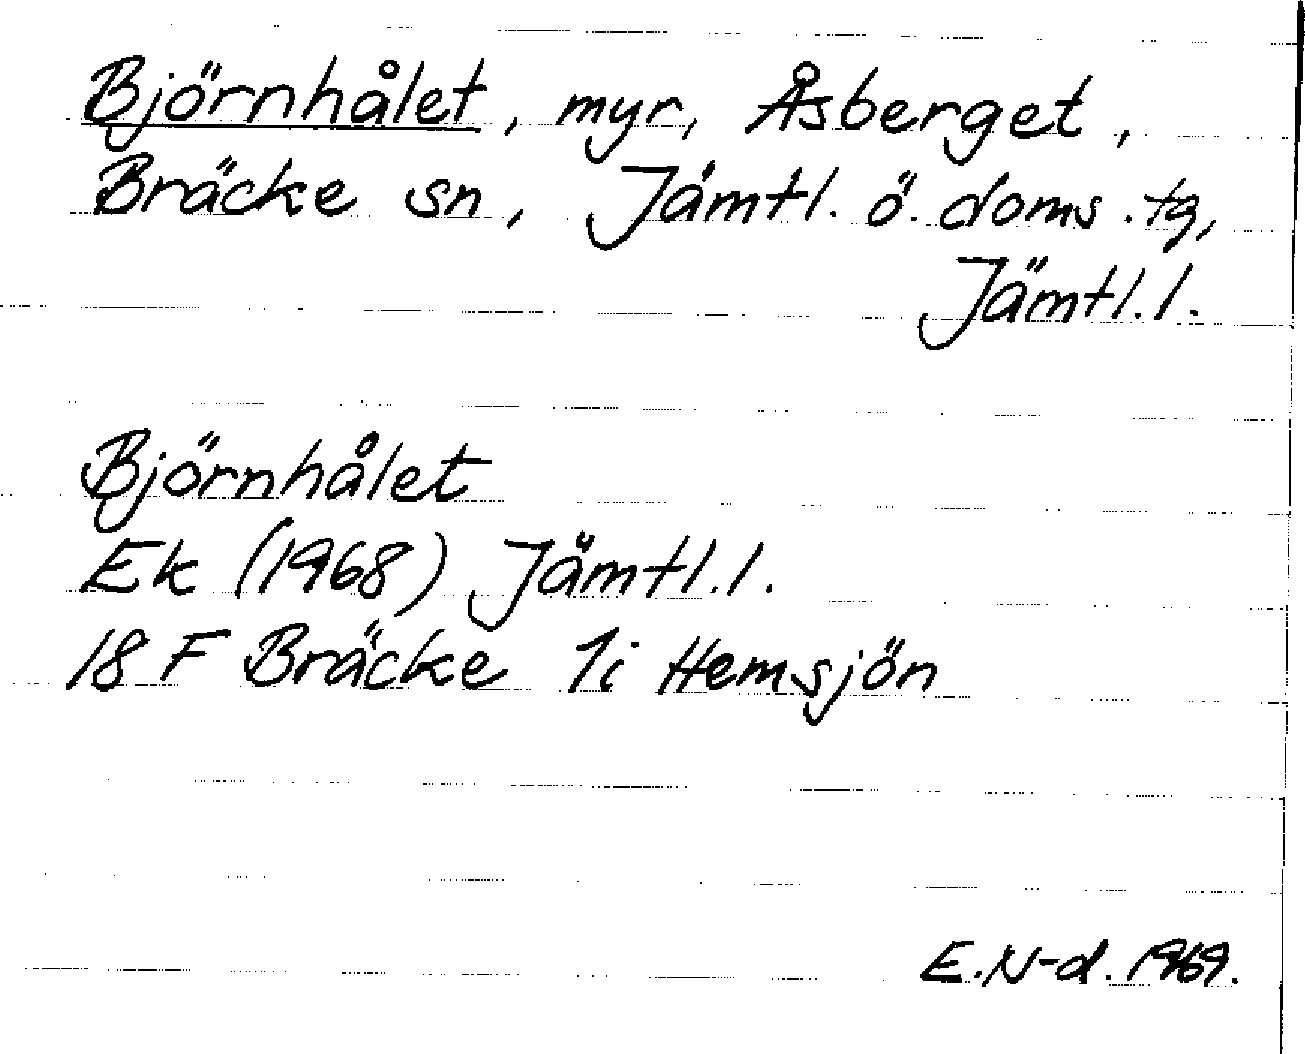 Björnhålet, myr, Åsberget,
Bräcke sn, Jämtl. ö. doms.tg,
Jämtl.l.
Björnhålet
Ek (1968) Jämtl.l.
18 F Bräcke 1i Hemsjön
E.N-d. 1969.